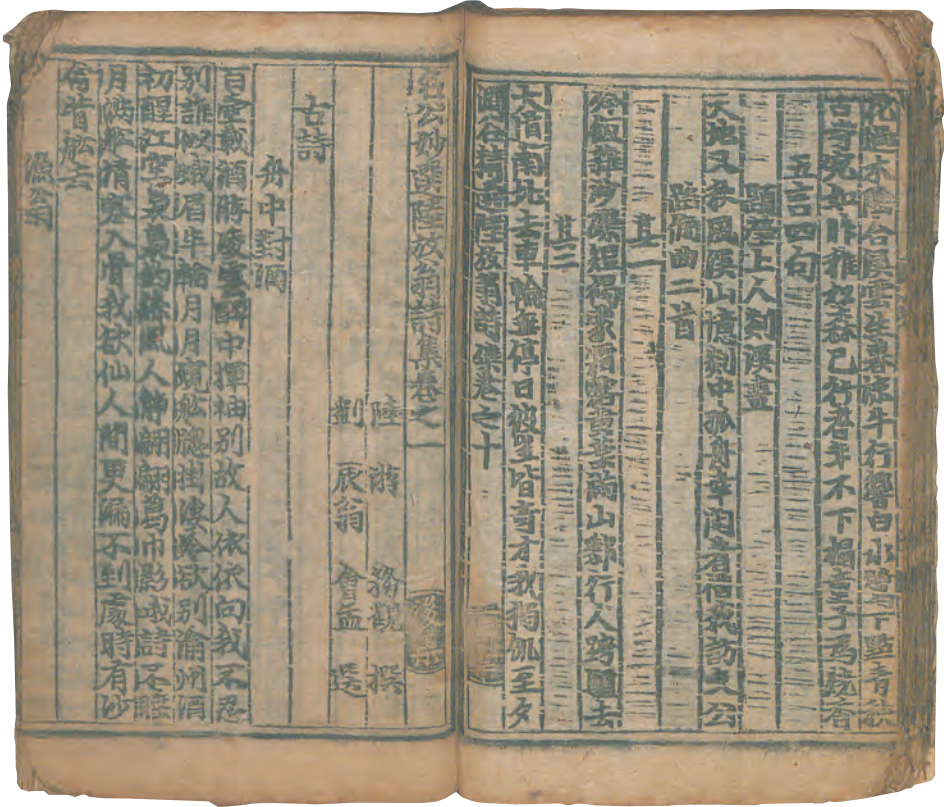 木陰合溪雲生暮涼牛行響白水鷺下點青秧
古寺宛如昨
五言四句
題上人剡溪畫
天地又秋風溪山憶剡中孤舟幸閑著借我訪支公
曲二首
其一
冷飯雜沙礫短褐蒙霜露黃葉滿山郵行人跨驢去
其二
大道南北去車輪無停日彼豈皆奇才我獨飢至夕
澗谷精選陸放翁詩集卷之十
名公妙選陸放翁詩集卷之一
陸 游 務觀 撰
劉 辰翁 會孟 選
古詩
舟中對
百壺載酒游凌雲醉中揮袖別故人依依向我不忍
別誰似峨眉半輪月月窺船窗挂淒冷欲別渝州酒
初醒江空裊裊釣絲風人静翩翩葛巾影哦詩不睡
月滿船清寒入骨我欲仙人間更漏不到處時有沙
禽背船去
漁翁